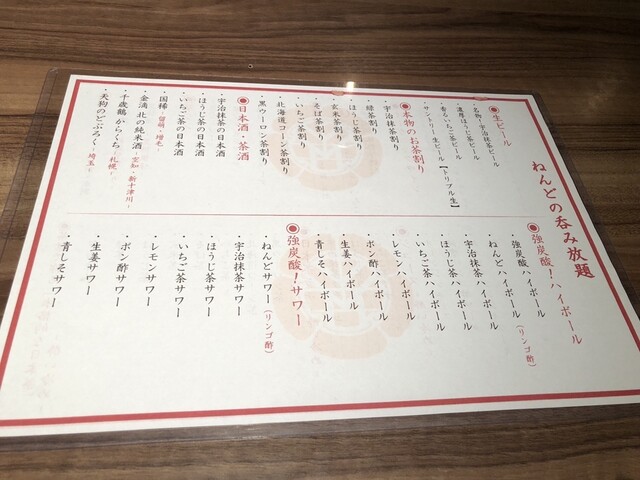 ねんどの呑み放題
◉生ビール
・名物・宇治抹茶ビール
・濃厚ほうじ茶ビール
・香るいちご茶ビール
・サントリー生ビール【トリプル生】
◉本物のお茶割り
・宇治抹茶割り
・緑茶割り
・ほうじ茶割り
・玄米茶割り
・そば茶割り
・いちご茶割り
・北海道コーン茶割り
・黒ウーロン茶割り
◉日本酒・茶酒
・宇治抹茶の日本酒
・ほうじ茶の日本酒
・いちご茶の日本酒
・国稀 -留萌・増毛-
・金滴 北の純米酒 -空知・新十津川-
・千歳鶴 からくち -札幌-
・天狗のどぶろく -埼玉-
◉強炭酸!ハイボール
・強炭酸ハイボール
・ねんどハイボール(リンゴ酢)
・宇治抹茶ハイボール
・ほうじ茶ハイボール
・いちご茶ハイボール
・レモンハイボール
・ポン酢ハイボール
・生姜ハイボール
・青しそハイボール
◉強炭酸!サワー
・ねんどサワー(リンゴ酢)
・宇治抹茶サワー
・ほうじ茶サワー
・いちご茶サワー
・レモンサワー
・ポン酢サワー
・生姜サワー
・青しそサワー